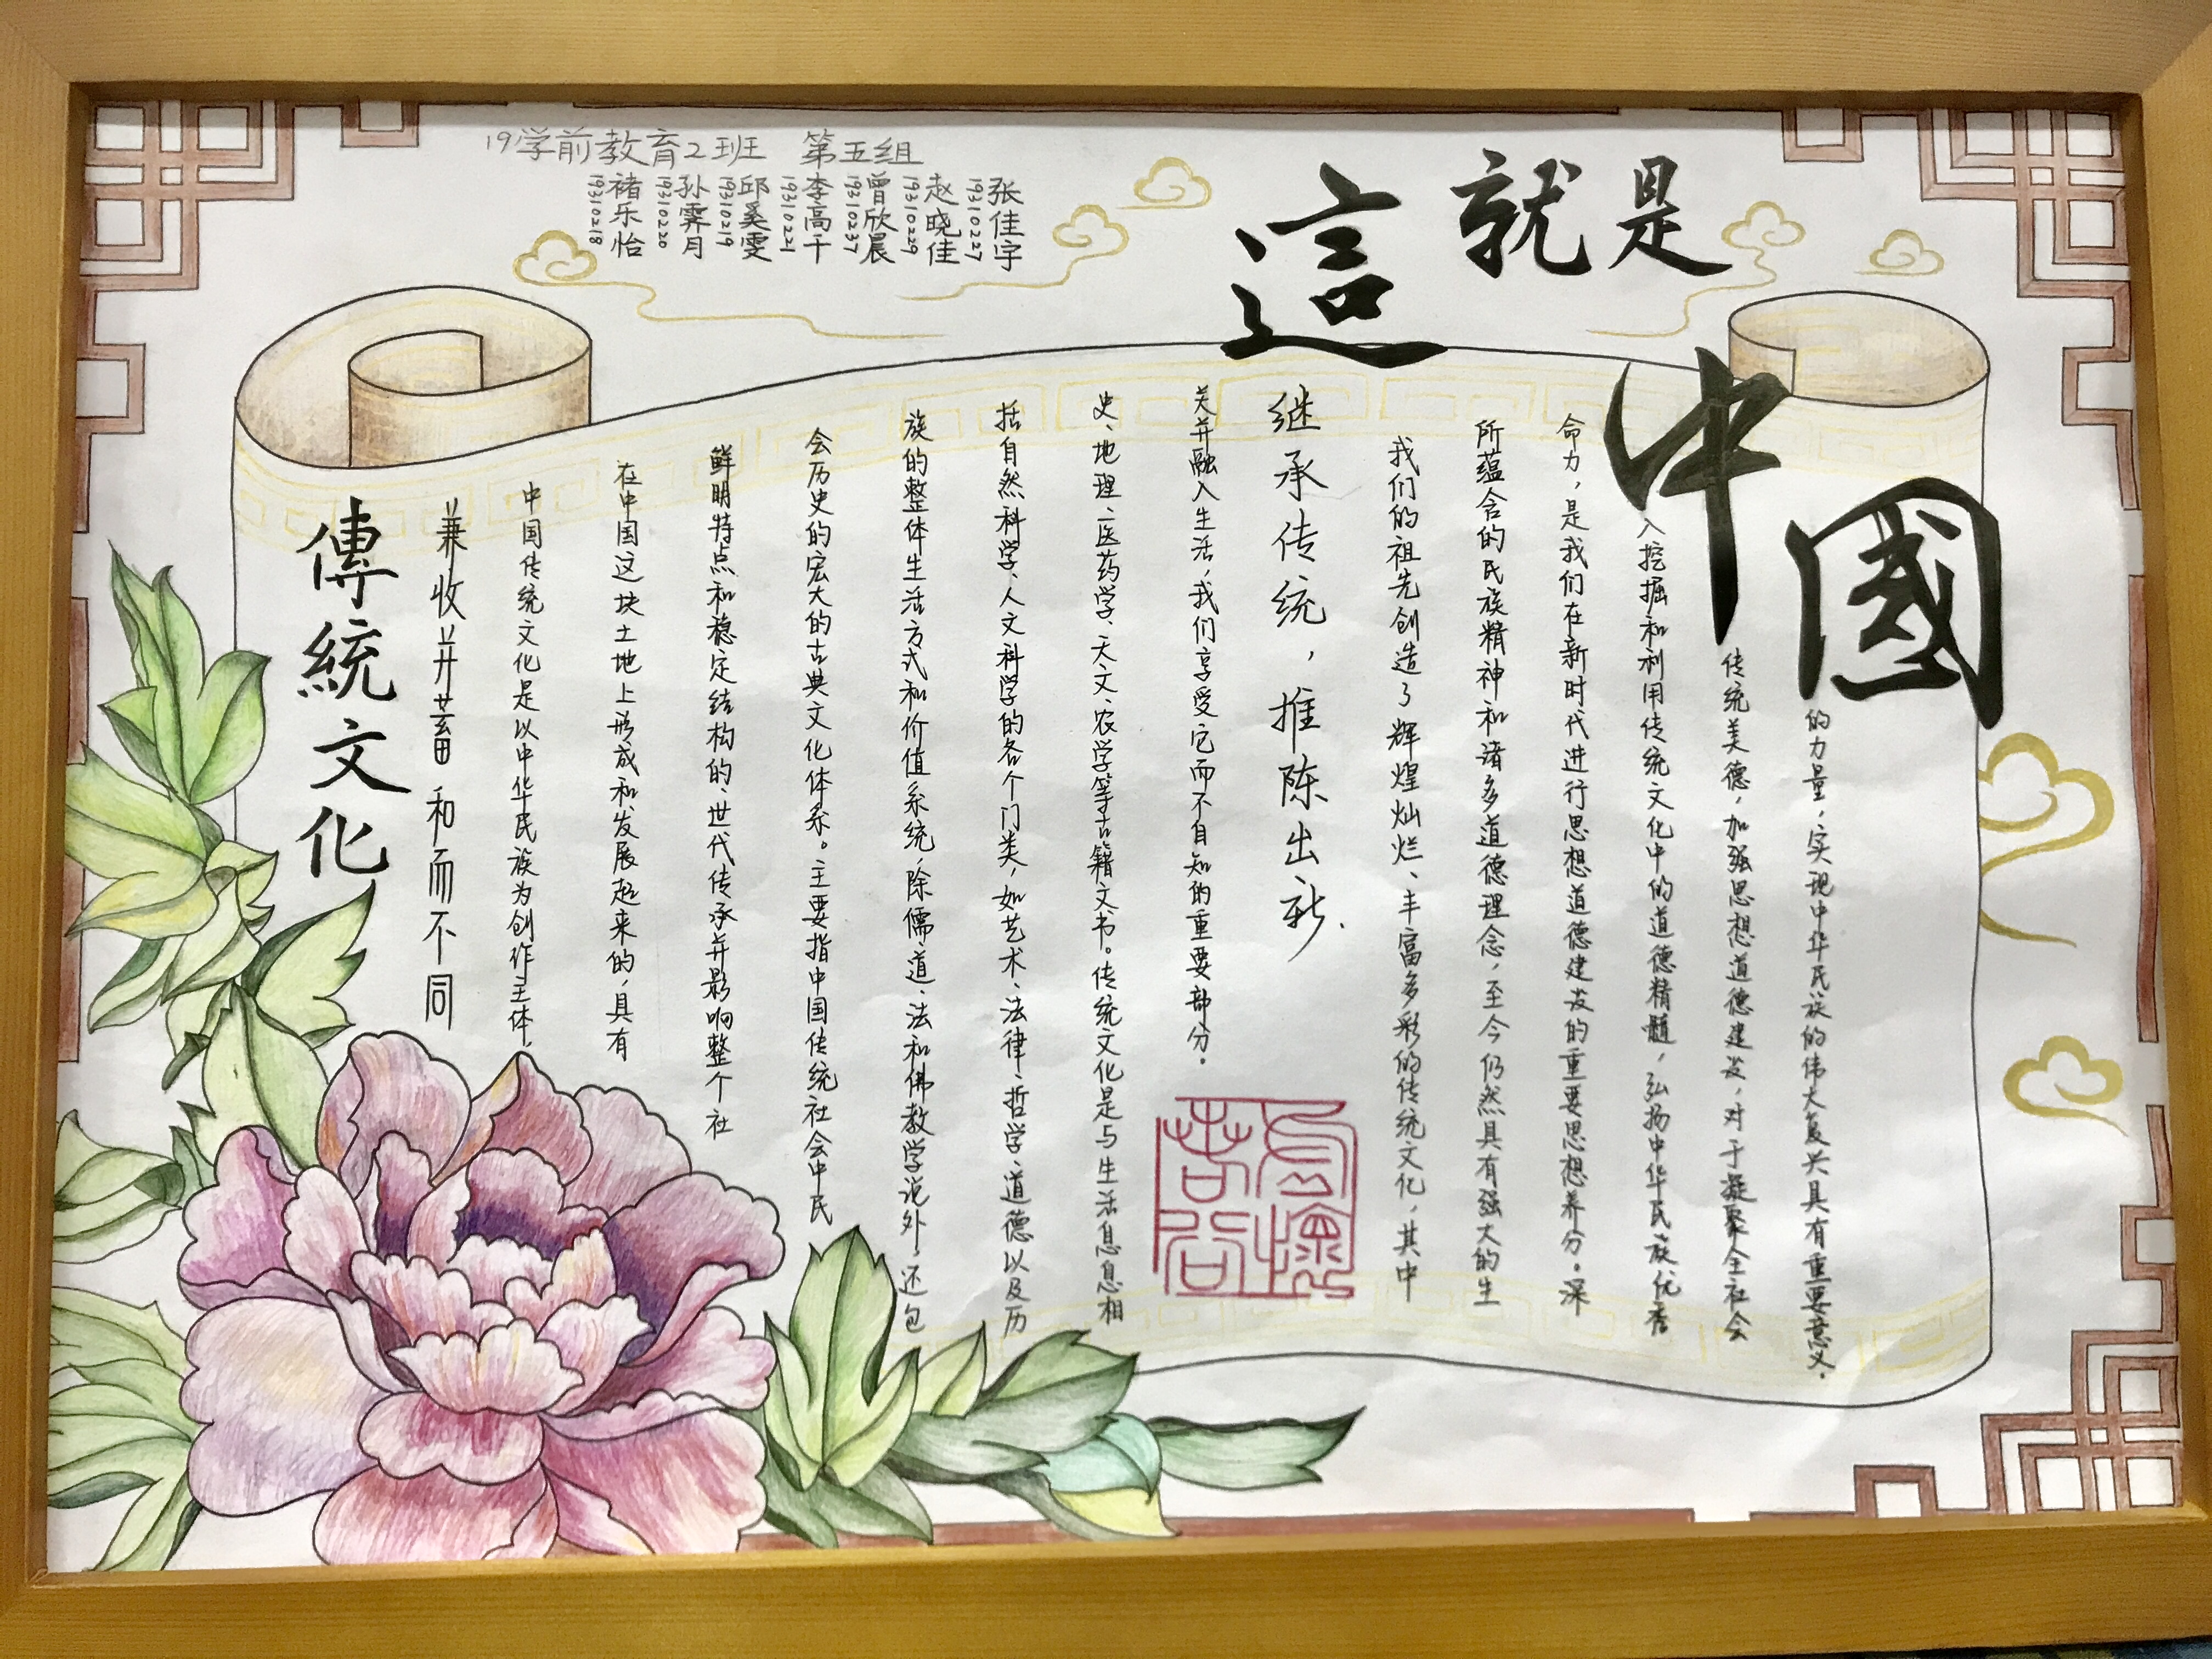 19学前教育2班 第五组
褚乐怡 19310218
孙霁月 19310220
邱奚雯 19310219
李高千 19310221
曾欣晨 19310237
赵晓佳 19310229
张佳宇 19310227
這就是
中國
傳統文化
兼收并蓄和而不同
中国传统文化是以中华民族为创作主体，
在中国这块土地上形成和发展起来的，具有
鲜明特点和稳定结构的、世代传承并影响整个社
会历史的宏大的古典文化体系。主要指中国传统社会中民
族的整体生活方式和价值系统，除儒、道、法和佛教学说外，还包
括自然科学、人文科学的各个门类，如艺术、法律、哲学、道德以及历
史、地理、医药学、天文、农学等古籍文书。传统文化是与生活息息相
关并融入生活，我们享受它而不自知的重要部分。
继承传统，推陈出新.
我们的祖先创造了辉煌灿烂、丰富多彩的传统文化，其中
所蕴含的民族精神和诸多道德理念，至今仍然具有强大的生
命力，是我们在新时代进行思想道德建设的重要思想养分。深
入挖掘和利用传统文化中的道德精髓，弘扬中华民族优秀
传统美德，加强思想道德建设，对于凝聚全社会
的力量，实现中华民族的伟大复兴具有重要意义.